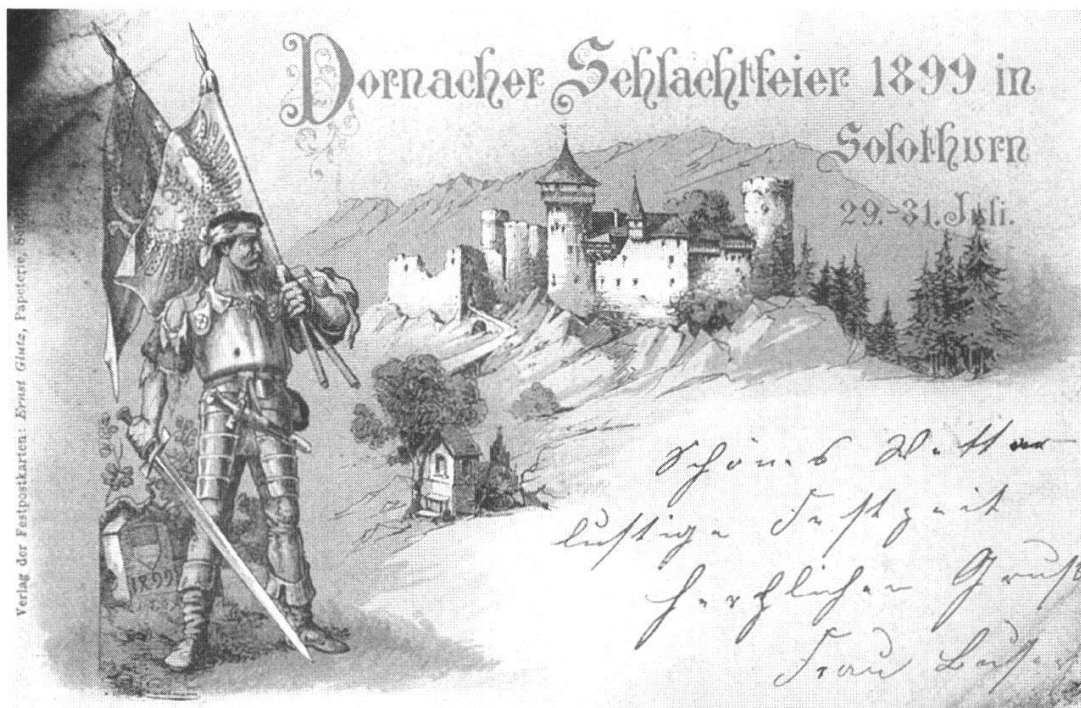 Dornacher Schlachtfeier 1899 in
Solothurn
29.-31. Juli.
Verlag der Festpostkarten: Ernst Glutz, Papeterie,
1899
Schönes Wetter
lustige Festzeit
herzlichen Gruß
Frau